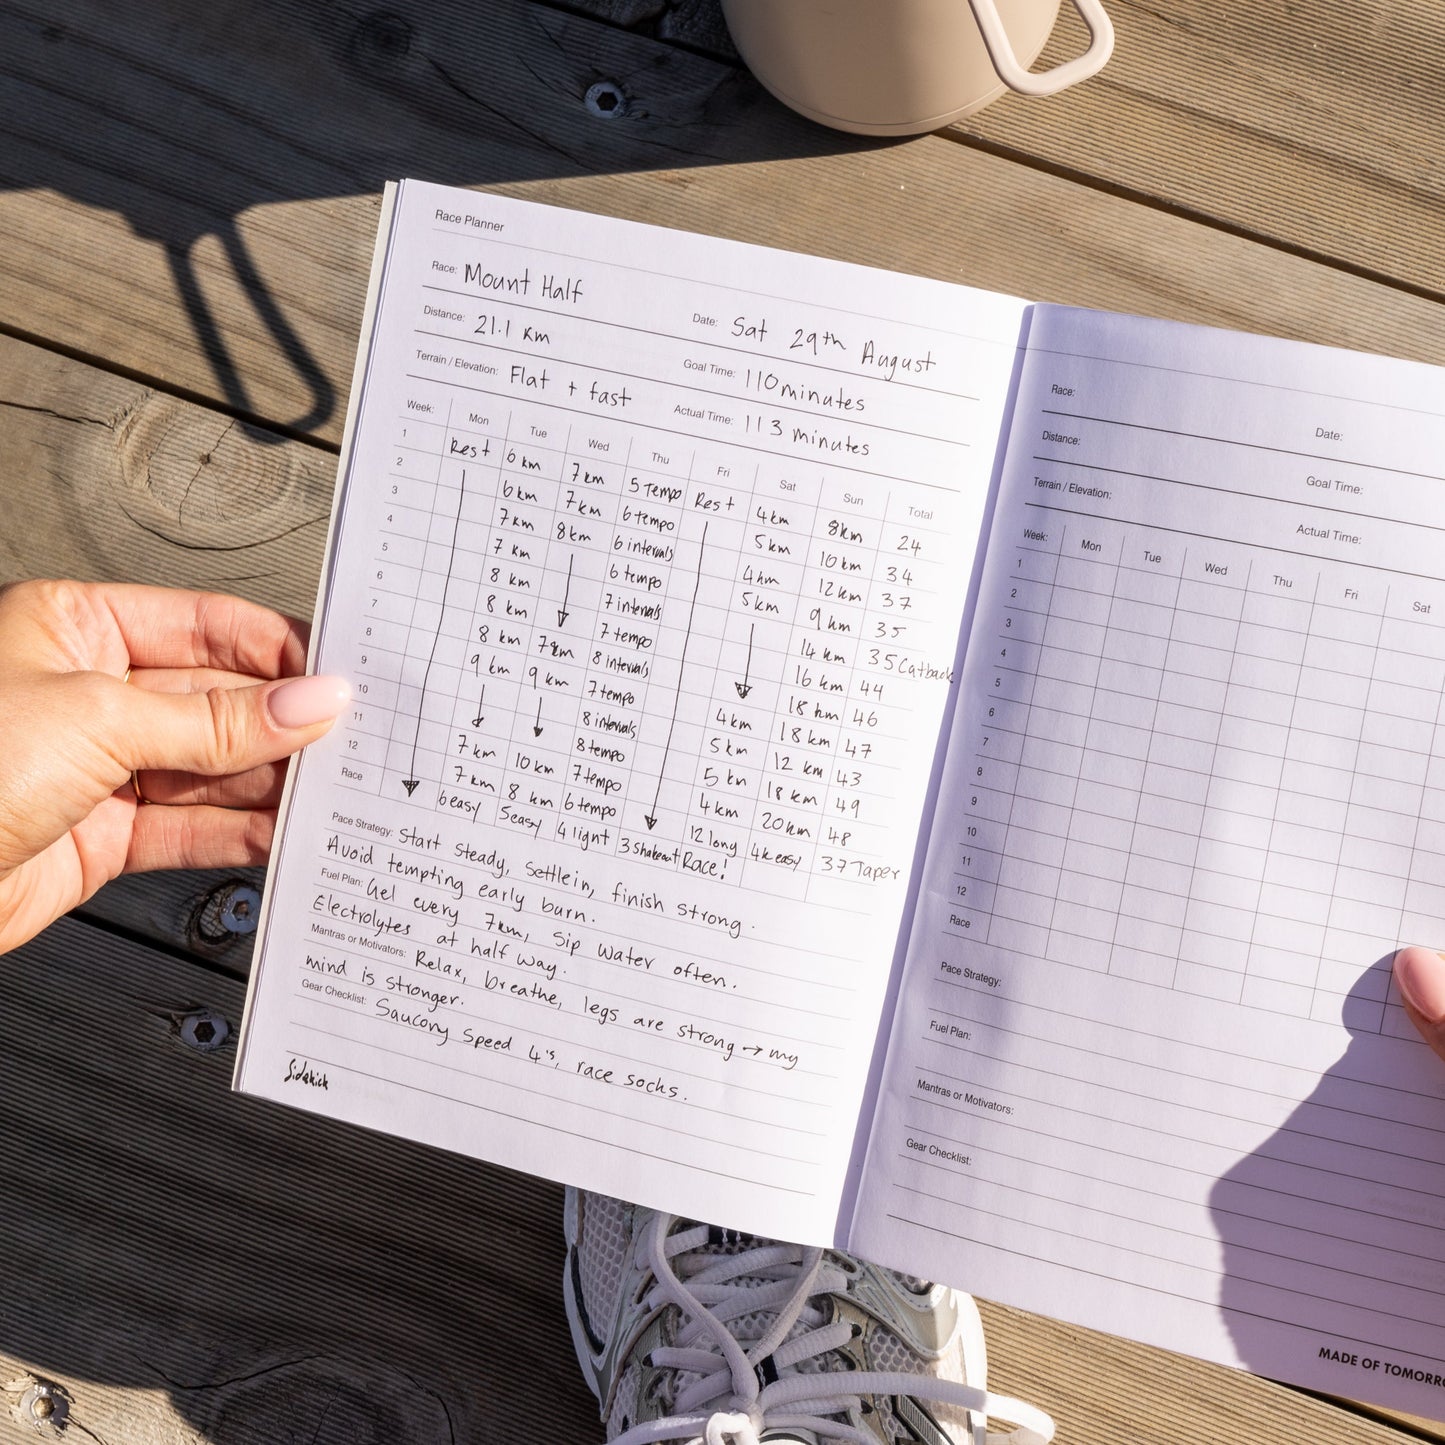 Race Planner
Race: Mount Half
Date: Sat 29th August
Distance: 21.1 km
Goal Time: 110 minutes
Terrain / Elevation: Flat + fast
Actual Time: 113 minutes
Week: Mon Tue Wed Thu Fri Sat Sun Total
1 Rest 6 km 7km 5 Tempo Rest 4km 8km 24
2 6km 7km 6 tempo 5km 10km 34
3 7km 8km 6 intervals 4km 12km 37
4 7 km 6 tempo 5km 9 km 35
5 8 km 7 intervals 14 km 35
6 8 km 7 tempo 16 km 44
7 8 km 7km 8 intervals 18 km 46
8 9 km 9 km 7 tempo 4km 18 km 47
9 8 intervals 5 km 12 km 43
10 8 tempo 5 km 18 km 49
11 7 km 10 km 7 tempo 4 km 20km 48
12 7 km 8 km 6 tempo 12 long 4k easy 37 Taper
Race 6 easy 5 easy 4 light 3 shakeout Race!
Pace Strategy: Start steady, settle in, finish strong.
Avoid tempting early burn.
Fuel Plan: Gel every 7km, Sip water often.
Electrolytes at half way.
Mantras or Motivators: Relax, breathe, legs are strong → my
mind is stronger.
Gear Checklist: Saucony Speed 4's, race socks.
Sidekick
Race:
Date:
Distance:
Goal Time:
Terrain / Elevation:
Actual Time:
Week: Mon Tue Wed Thu Fri Sat
1
2
3
4
5
6
7
8
9
10
11
12
Race
Pace Strategy:
Fuel Plan:
Mantras or Motivators:
Gear Checklist:
MADE OF